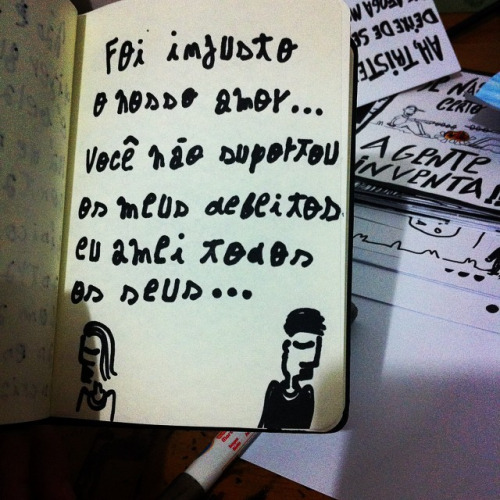 Foi injusto
o nosso amor...
você não suportou
os meus defeitos.
eu amei todos
os seus...
AH, TRISTE
DEIXE DE SE
CERTO
A GENTE
INVENTA!!